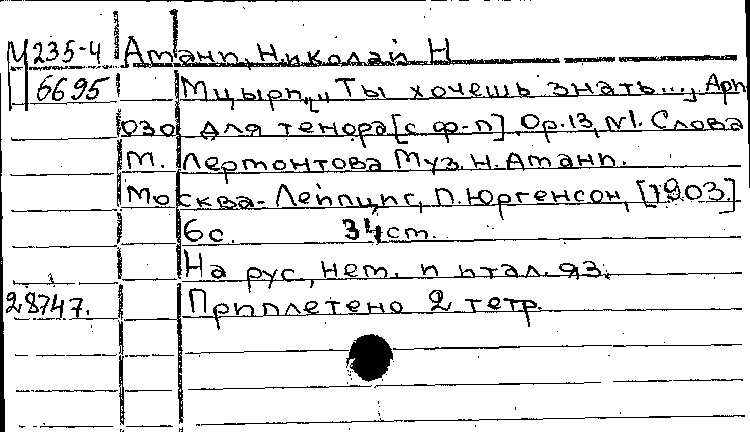 М 235-4 Атанп, Николай Н
6695 Мцырп. „Ты хочешь знать...", Арп
озо для тенора [с ф-п]. Ор.13, №1. Слова
М. Лермонтова Муз. Н. Атанп.
Москва-Лейпциг, П. Юргенсон, [1903]
6с. 34ст.
На рус., нем. п птал. яз.
28747. Прпплетено 2 тетр.